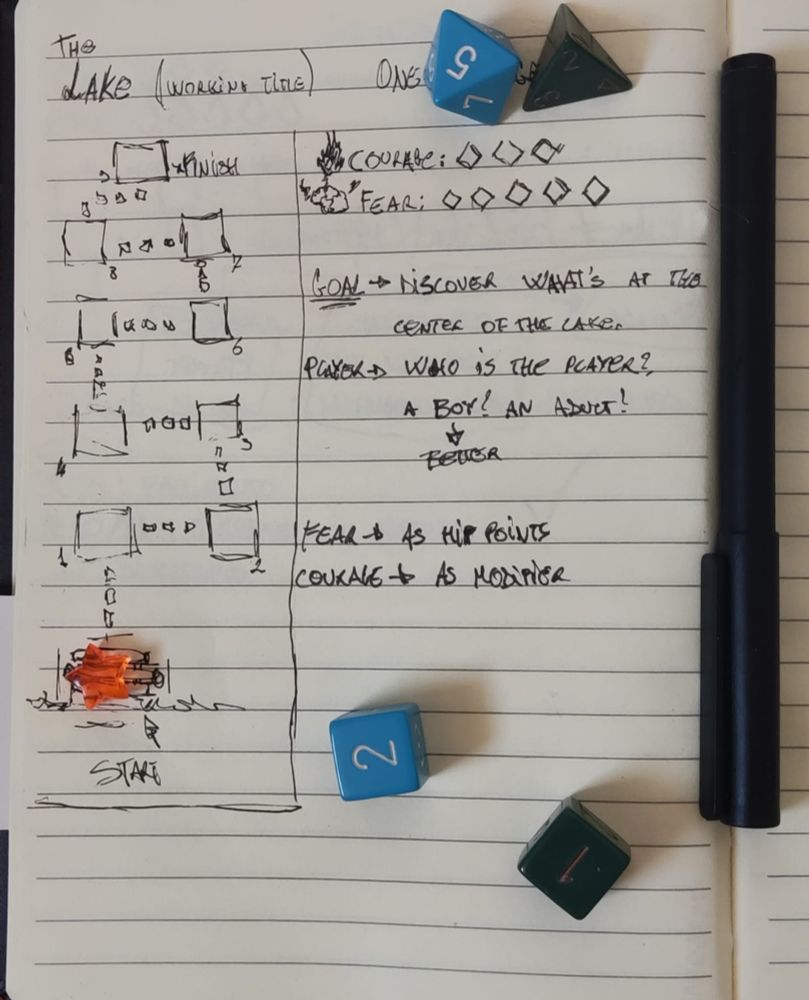 THE
LAKE (WORKING TITLE) ONE
FINISH
9
8 7
6
5 6
4 3
1 2
START
COURAGE:
FEAR:
GOAL → DISCOVER WHAT'S AT THE
CENTER OF THE LAKE.
PLAYER → WHO IS THE PLAYER?
A BOY? AN ADULT!
↓
BETTER
FEAR → AS HIP POINTS
COURAGE → AS MODIFIER
5
7
2
2
1